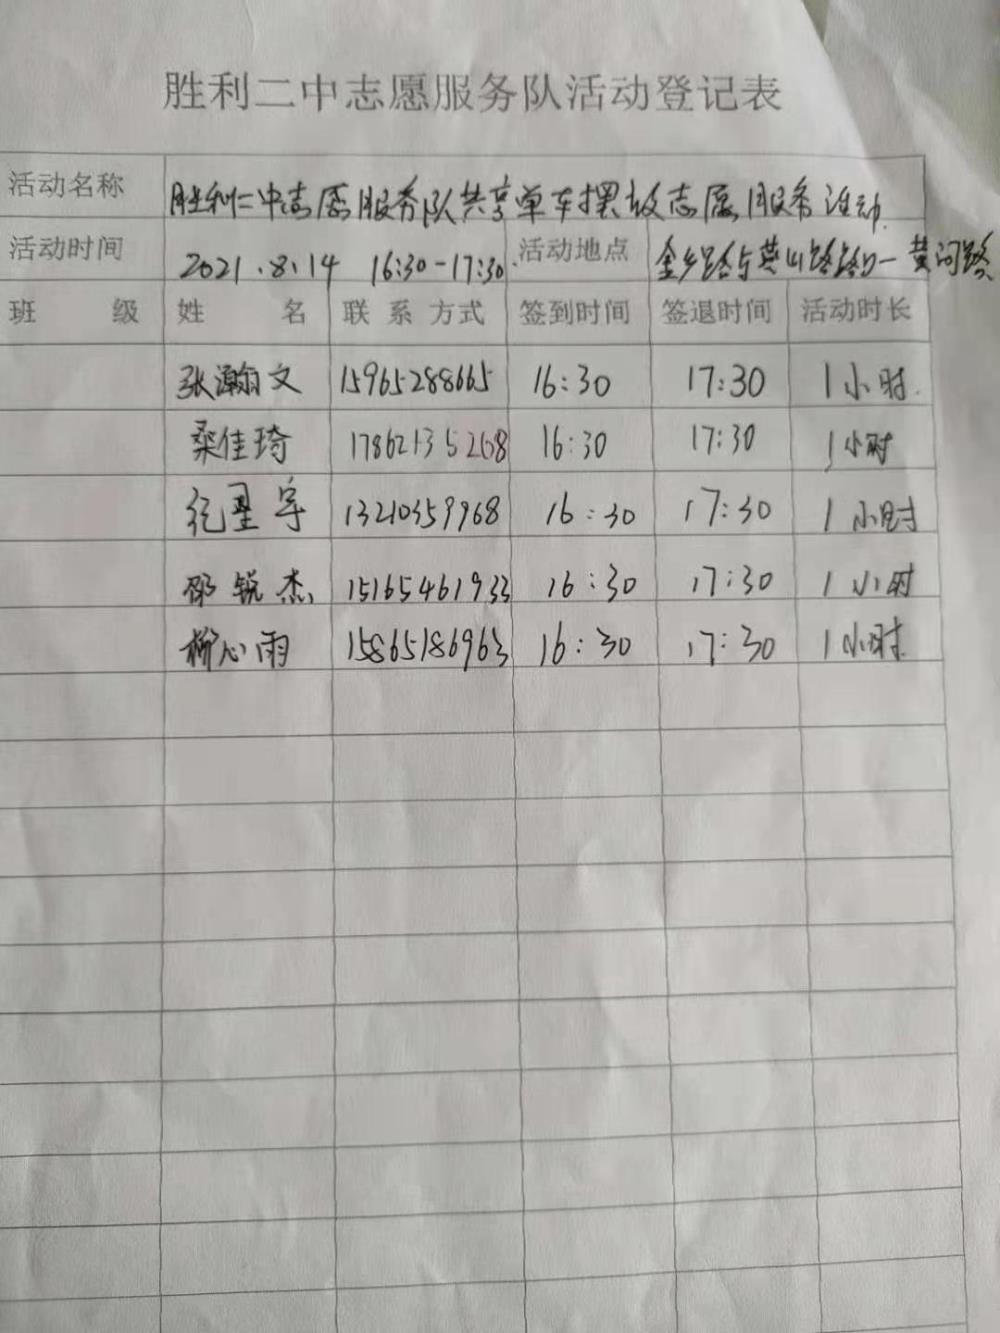 胜利二中志愿服务队活动登记表
活动名称 胜利二中志愿服务队共享单车摆放志愿服务活动
活动时间 2021.8.14 16:30-17:30 活动地点 金乡路与燕山路路口-黄河路
班 级 姓 名 联系方式 签到时间 签退时间 活动时长
张瀚文 15965288665 16:30 17:30 1小时
桑佳琦 17862135268 16:30 17:30 1小时
纪星宇 13210359968 16:30 17:30 1小时
邵锐杰 15165461933 16:30 17:30 1小时
柳心雨 15865186963 16:30 17:30 1小时